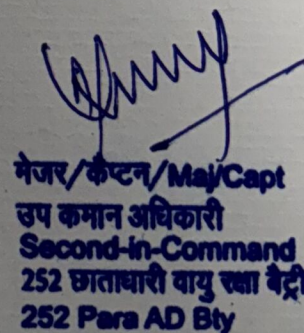 मेजर/कैप्टन/Maj/Capt
उप कमान अधिकारी
Second-in-Command
252 छाताधारी वायु रक्षा बैट्री
252 Para AD Bty